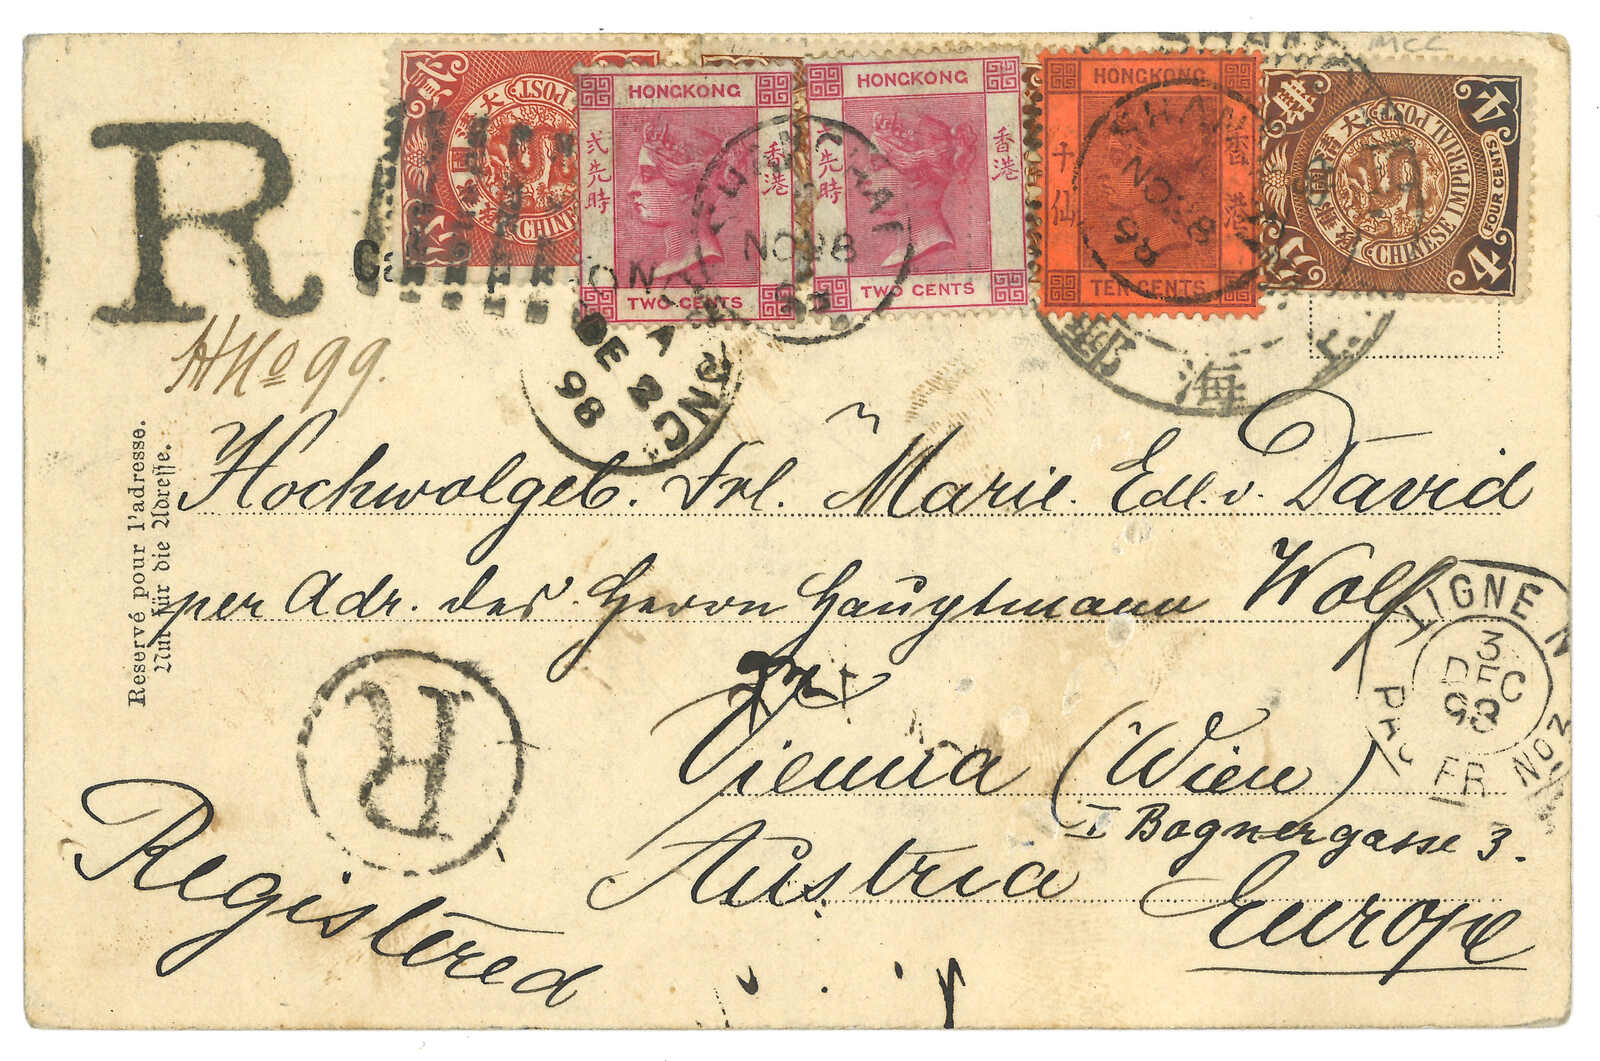 MCC
HONGKONG
HONGKONG
HONGKONG
大清
POST
CHINE
弍先時
香港
先時
香港
千仙
香港
大清
IMPERIAL POST
CHINESE
FOUR CENTS
4
4
TWO CENTS
TWO CENTS
TEN CENTS
NO 28
98
NO 28
98
海
R
HNo 99.
A
DE 2
98
Reservé pour l'adresse.
Nur für die Adresse.
Hochwolgeb. Frl. Marie Edl. v. David
per Adr. des Herrn Hauptmann Wolf
LIGNE N
3
DEC
98
FR. NO2
Vienna (Wien)
I Bognergasse 3.
Austria Europe
R
Registered